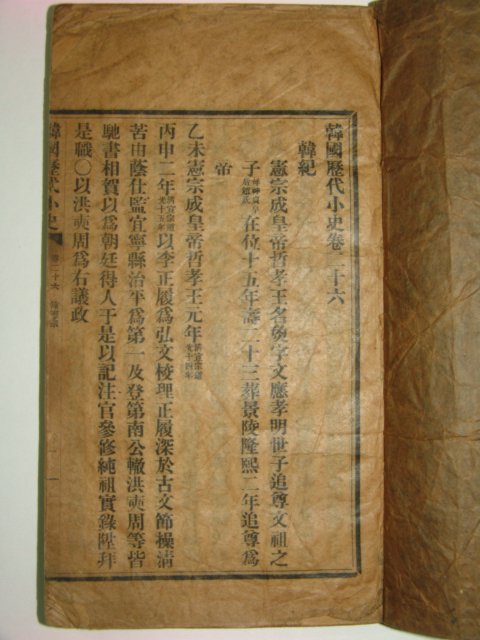 韓國歷代小史卷二十六
韓紀
憲宗成皇帝哲孝王名奐字文應孝明世子追尊文祖之
子母神貞皇后趙氏在位十五年壽二十三葬景陵隆熙二年追尊爲
帝
乙未憲宗成皇帝哲孝王元年淸宣宗道光十四年
丙申二年淸宣宗道光十五年以李正履爲弘文校理正履深於古文節操淸
苦由蔭仕監宜寧縣治平爲第一及登第南公轍洪奭周等皆
馳書相賀以爲朝廷得人于是以記注官參修純祖實錄陞拜
是職○以洪奭周爲右議政
韓國歷代小史 卷二十六